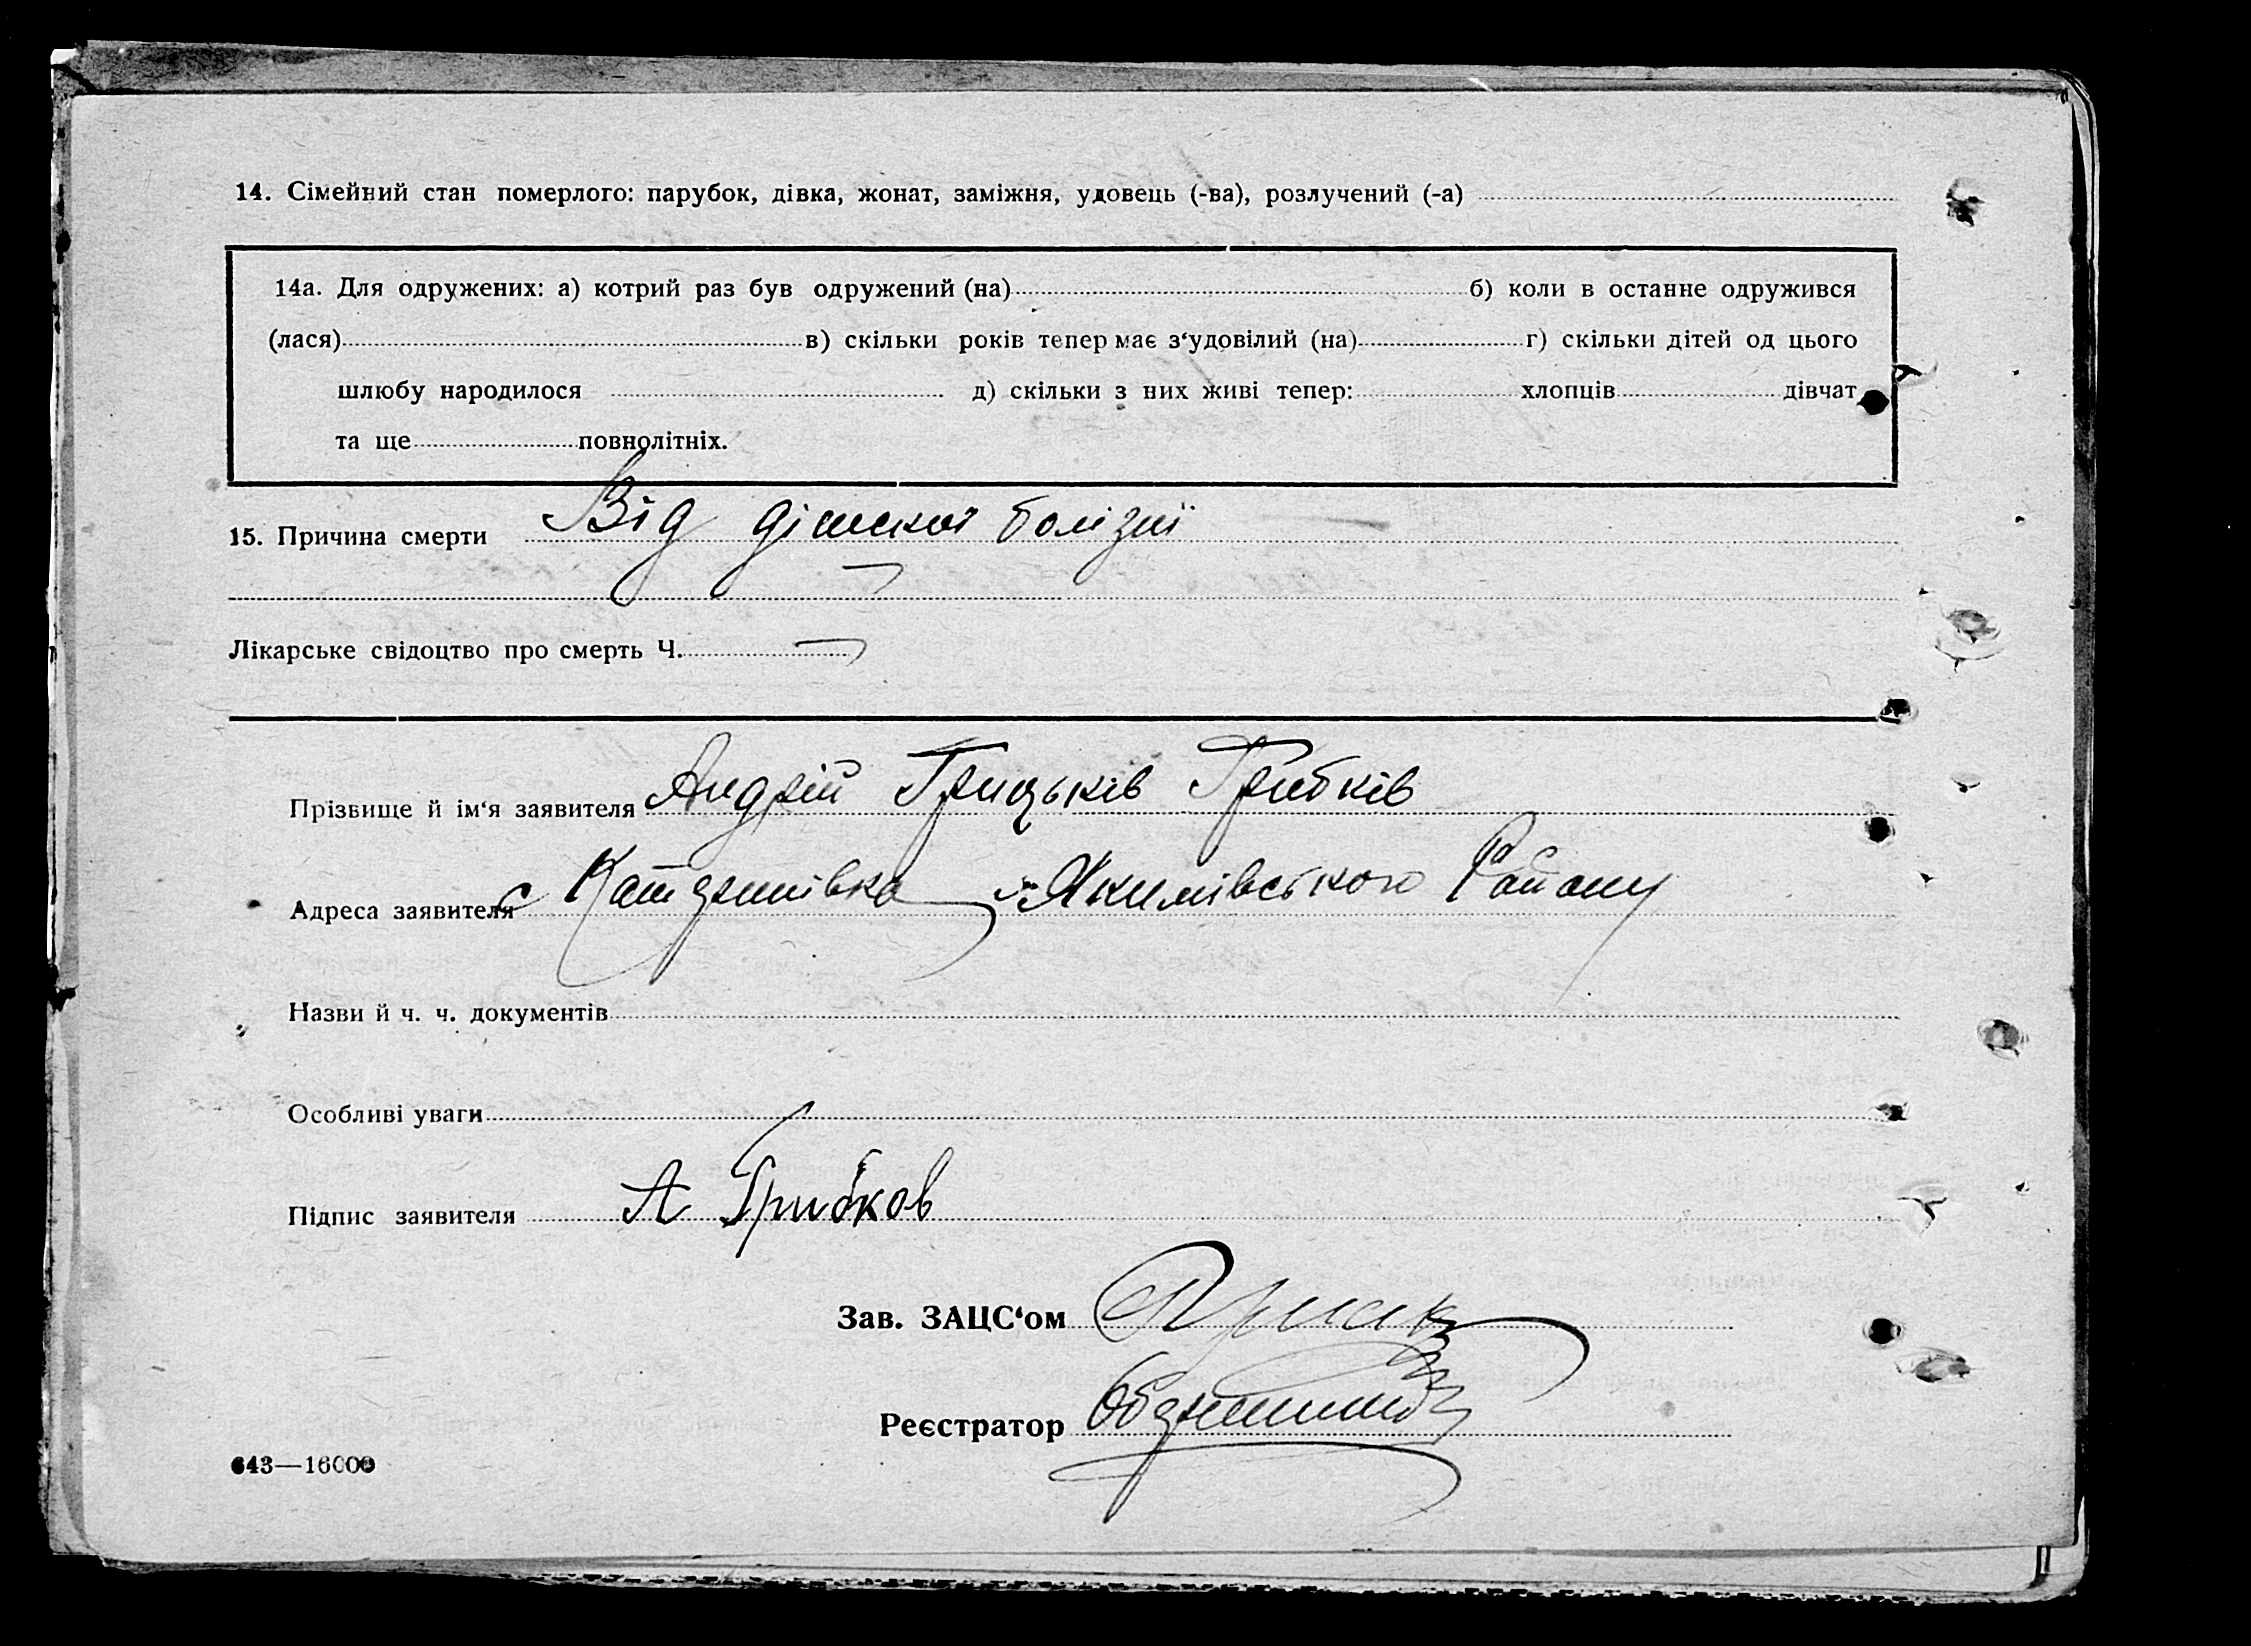 14. Сімейний стан померлого: парубок, дівка, жонат, заміжня, удовець (-ва), розлучений (-а)
14а. Для одружених: а) котрий раз був одружений (на) б) коли в останнє одружився
(лася) в) скільки років тепер має з‘удовілий (на) г) скільки дітей од цього
шлюбу народилося д) скільки з них живі тепер: хлопців дівчат
та ще повнолітніх.
15. Причина смерти Від дітскої болізнї
Лікарське свідоцтво про смерть Ч.
Прізвище й ім‘я заявителя Андрій Грицьків Грибків
Адреса заявителя с Якимівського Району
Назви й ч. ч. документів
Особливі уваги
Підпис заявителя А Грибков
Зав. ЗАЦС‘ом
Реєстратор
643—16000